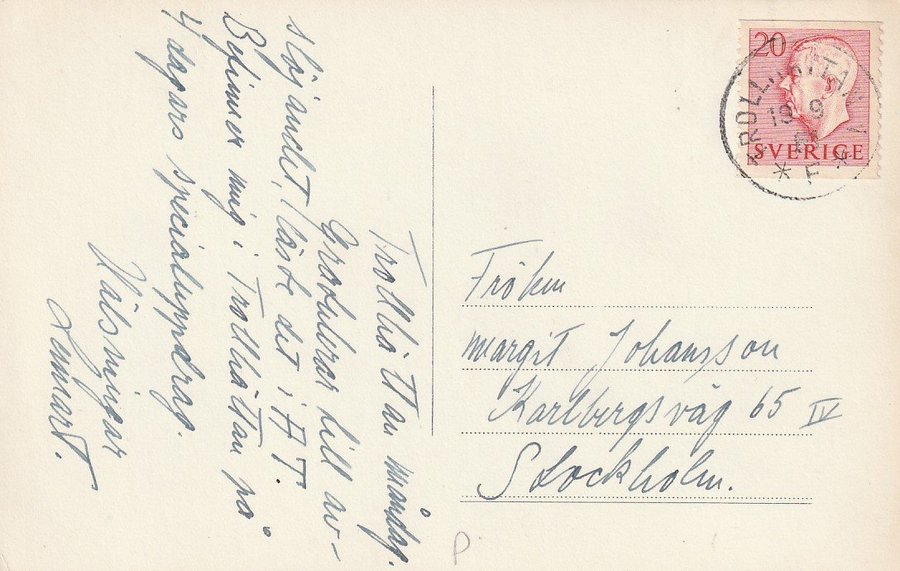 Trollhättan måndag.
Gratuleras till av-
slöjandet, läste det i AT.
Befinner mig i Trollhättan på
4 dagars specialuppdrag.
Hälsningar
Lennart.
20
SVERIGE
TROLLHÄTTAN
19 9
* F *
Fröken
Margit Johansson
Karlbergsväg 65 IV
Stockholm.
P.